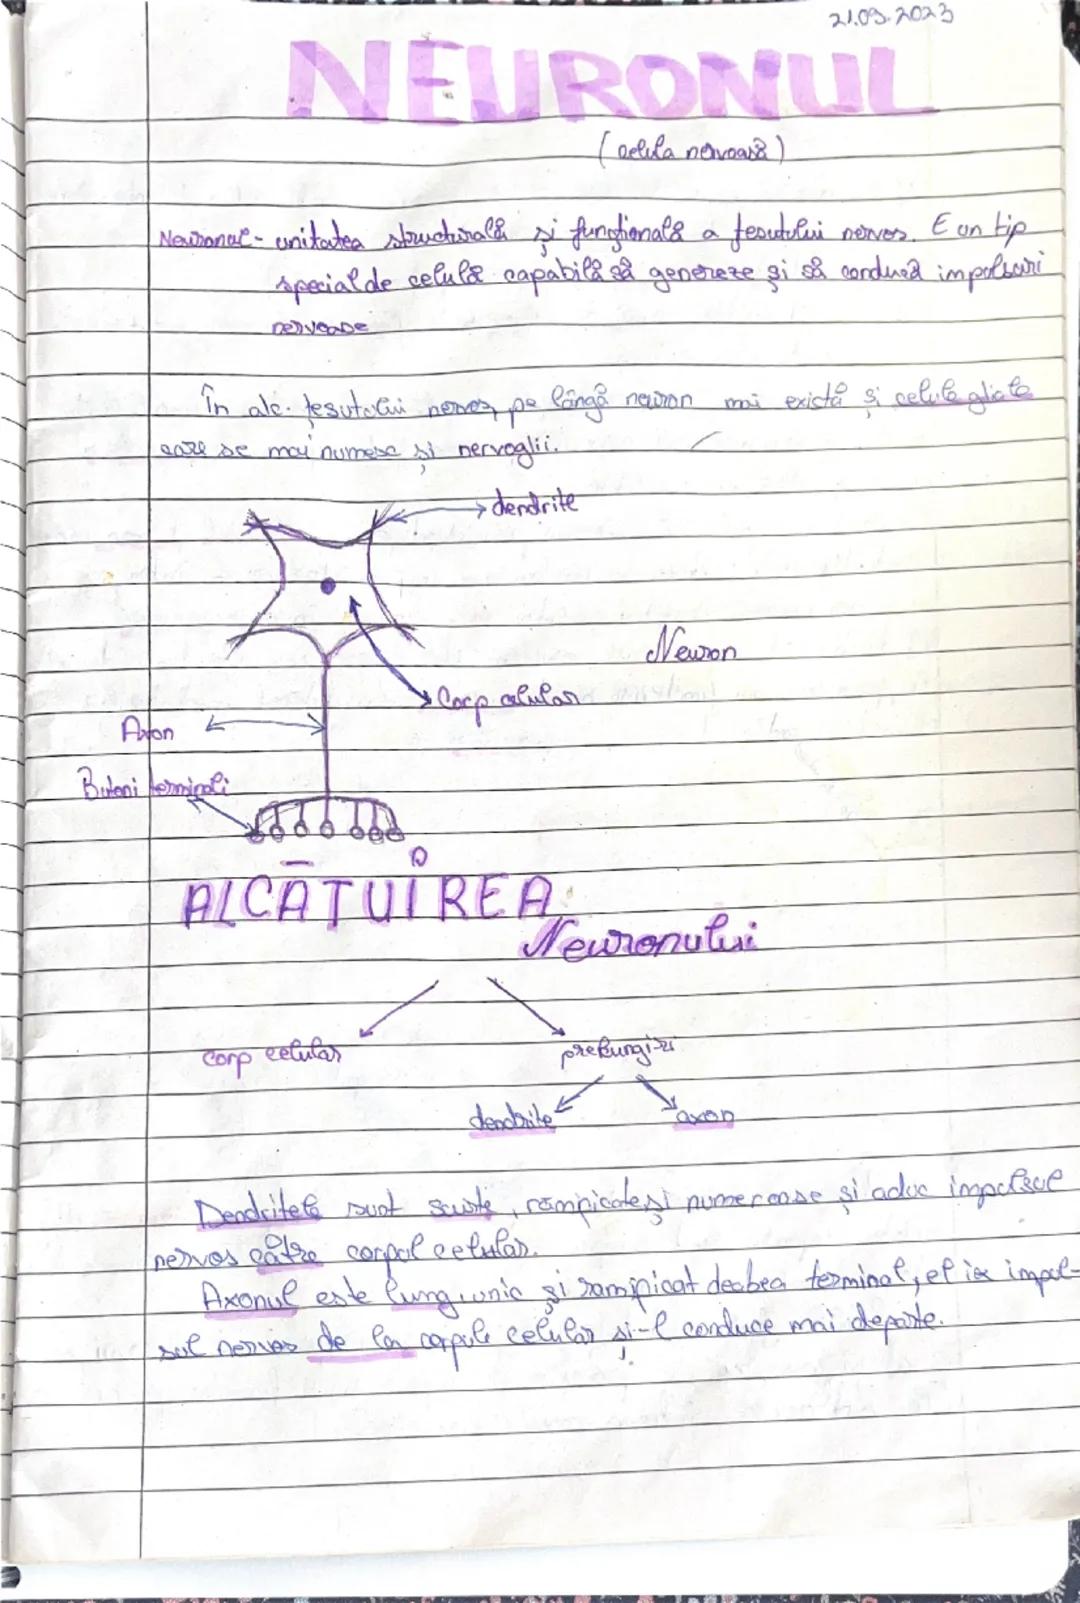 21.09.2023
NEURONUL
(celula nervoasă)
Neuronul - unitatea structurală și funcțională a țesutului nervos. E un tip
special de celulă capabilă să genereze și să conducă impulsuri
nervoase
În alc. țesutului nervos, pe lângă neuron mai există și celule gliale
care se mai numesc și nervoglii.
dendrite
Neuron
Corp celular
Axon
Butoni terminali
ALCĂTUIREA
Neuronului
corp celular
prelungiri
dendrite
axon
Dendritele sunt scurte, ramificate și numeroase și aduc impulsul
nervos către corpul celular.
Axonul este lung, unic și ramificat deabea terminal, el ia impul-
sul nervos de la corpul celular și-l conduce mai departe.